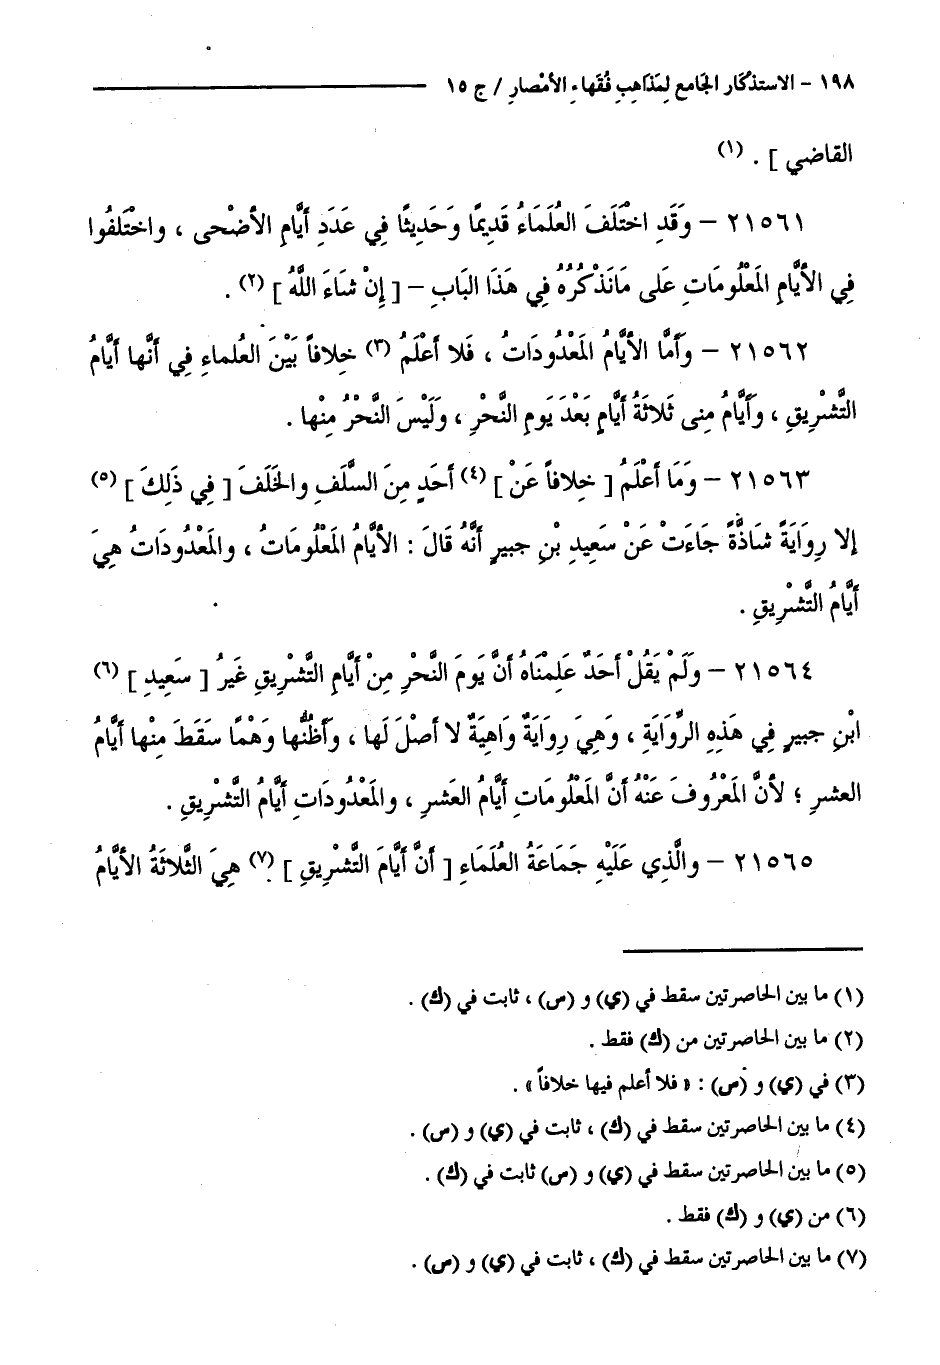 ١٩٨ - الاستذكار الجَامع لِمَذاهِبِ فُقَهاءِ الأمْصارِ / ج ١٥
القاضي ] . (١)
٢١٥٦١ – وَقَدِ اخْتَلَفَ العُلَمَاءُ قَدِيمًا وَحَدِيثًا فِي عَدَدِ أيَّامِ الأضْحى ، واخْتَلفُوا
فِي الأيَّامِ المَعْلُومَاتِ عَلى مَانَذْكُرُهُ فِي هَذَا البَابِ – [ إنْ شَاءَ اللَّهُ ] (٢) .
٢١٥٦٢ – وَأمَّا الأيَّامُ المَعْدُودَاتُ ، فَلا أعْلَمُ (٣) خلافاً بَيْنَ العُلماءِ فِي أنَّها أيَّامُ
التَّشْرِيقِ ، وَأيَّامُ مِنى ثَلاثَةُ أيَّامٍ بَعْدَ يَومِ النَّحْرِ ، وَلَيْسَ النَّحْرُ مِنْها .
٢١٥٦٣ – وَمَا أعْلَمُ [ خِلافاً عَنْ ] (٤) أحَدٍ مِنَ السَّلَفِ والخَلَفَ [ فِي ذَلِكَ ] (٥)
إلا رِوَايَةً شَاذَّةً جَاءَتْ عَنْ سَعِيدِ بْنِ جبيرٍ أنَّهُ قَالَ : الأيَّامُ المَعْلُومَاتُ ، والمَعْدُودَاتُ هِيَ
أيَّامُ التَّشْرِيقِ .
٢١٥٦٤ – وَلَمْ يَقُلْ أحَدٌ عَلِمْنَاهُ أنَّ يَومَ النَّحْرِ مِنْ أيَّامِ التَّشْرِيقِ غَيرُ [ سَعِيدِ ] (٦)
ابْنِ جبيرٍ فِي هَذِهِ الرِّوَايَةِ ، وَهِيَ رِوَايَةٌ وَاهِيَةٌ لا أصْلَ لَها ، وَأظُنُّها وَهْمًا سَقَطَ مِنْها أيَّامُ
العشرِ ؛ لأنَّ المَعْرُوفَ عَنْهُ أنَّ المَعْلُومَاتِ أيَّامُ العَشرِ ، والمَعْدُودَاتِ أيَّامُ التَّشْرِيقِ .
٢١٥٦٥ – والَّذِي عَلَيْهِ جَمَاعَةُ العُلَمَاءِ [ أنَّ أيَّامَ التَّشْرِيقِ ] (٧) هِيَ الثَّلاثَةُ الأيَّامُ
(١) ما بين الحاصرتين سقط في (ي) و (س) ، ثابت في (ك) .
(٢) ما بين الحاصرتين من (ك) فقط .
(٣) في (ي) و (س) : « فلا أعلم فيها خلافاً » .
(٤) ما بين الحاصرتين سقط في (ك) ، ثابت في (ي) و (س) .
(٥) ما بين الحاصرتين سقط في (ي) و (س) ثابت في (ك) .
(٦) من (ي) و (ك) فقط .
(٧) ما بين الحاصرتين سقط في (ك) ، ثابت في (ي) و (س) .